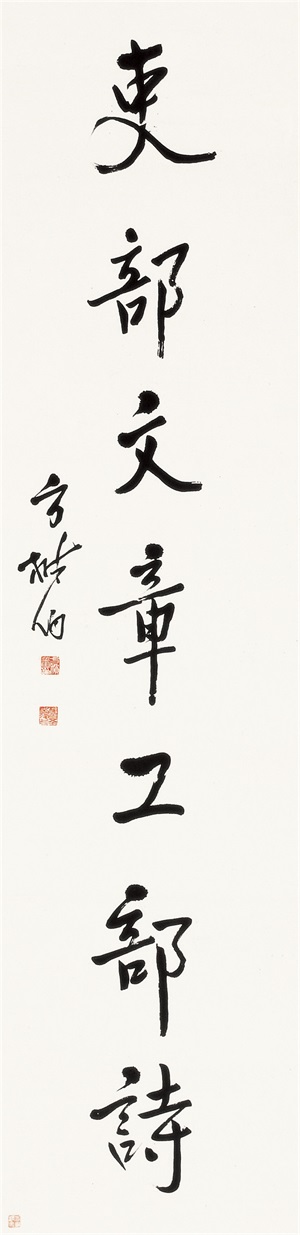 吏部文章工部詩
方楚雄